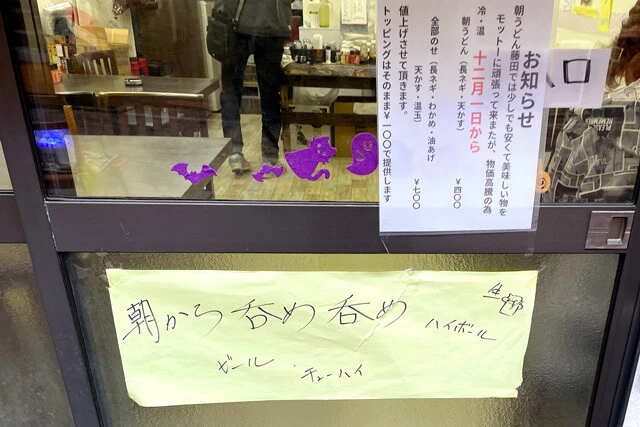 お知らせ
朝うどん藤田では少しでも安くて美味しい物を
モットーに頑張って来またが、物価高騰の為
十二月一日から
冷・温
朝うどん（長ネギ・天かす）
￥四〇〇
全部のせ（長ネギ・わかめ・油あげ
天かす・温玉）
￥七〇〇
値上げさせて頂きます。
トッピングはそのまま￥一〇〇で提供します
口
朝から呑め呑め
生
ハイボール
ビール
チューハイ